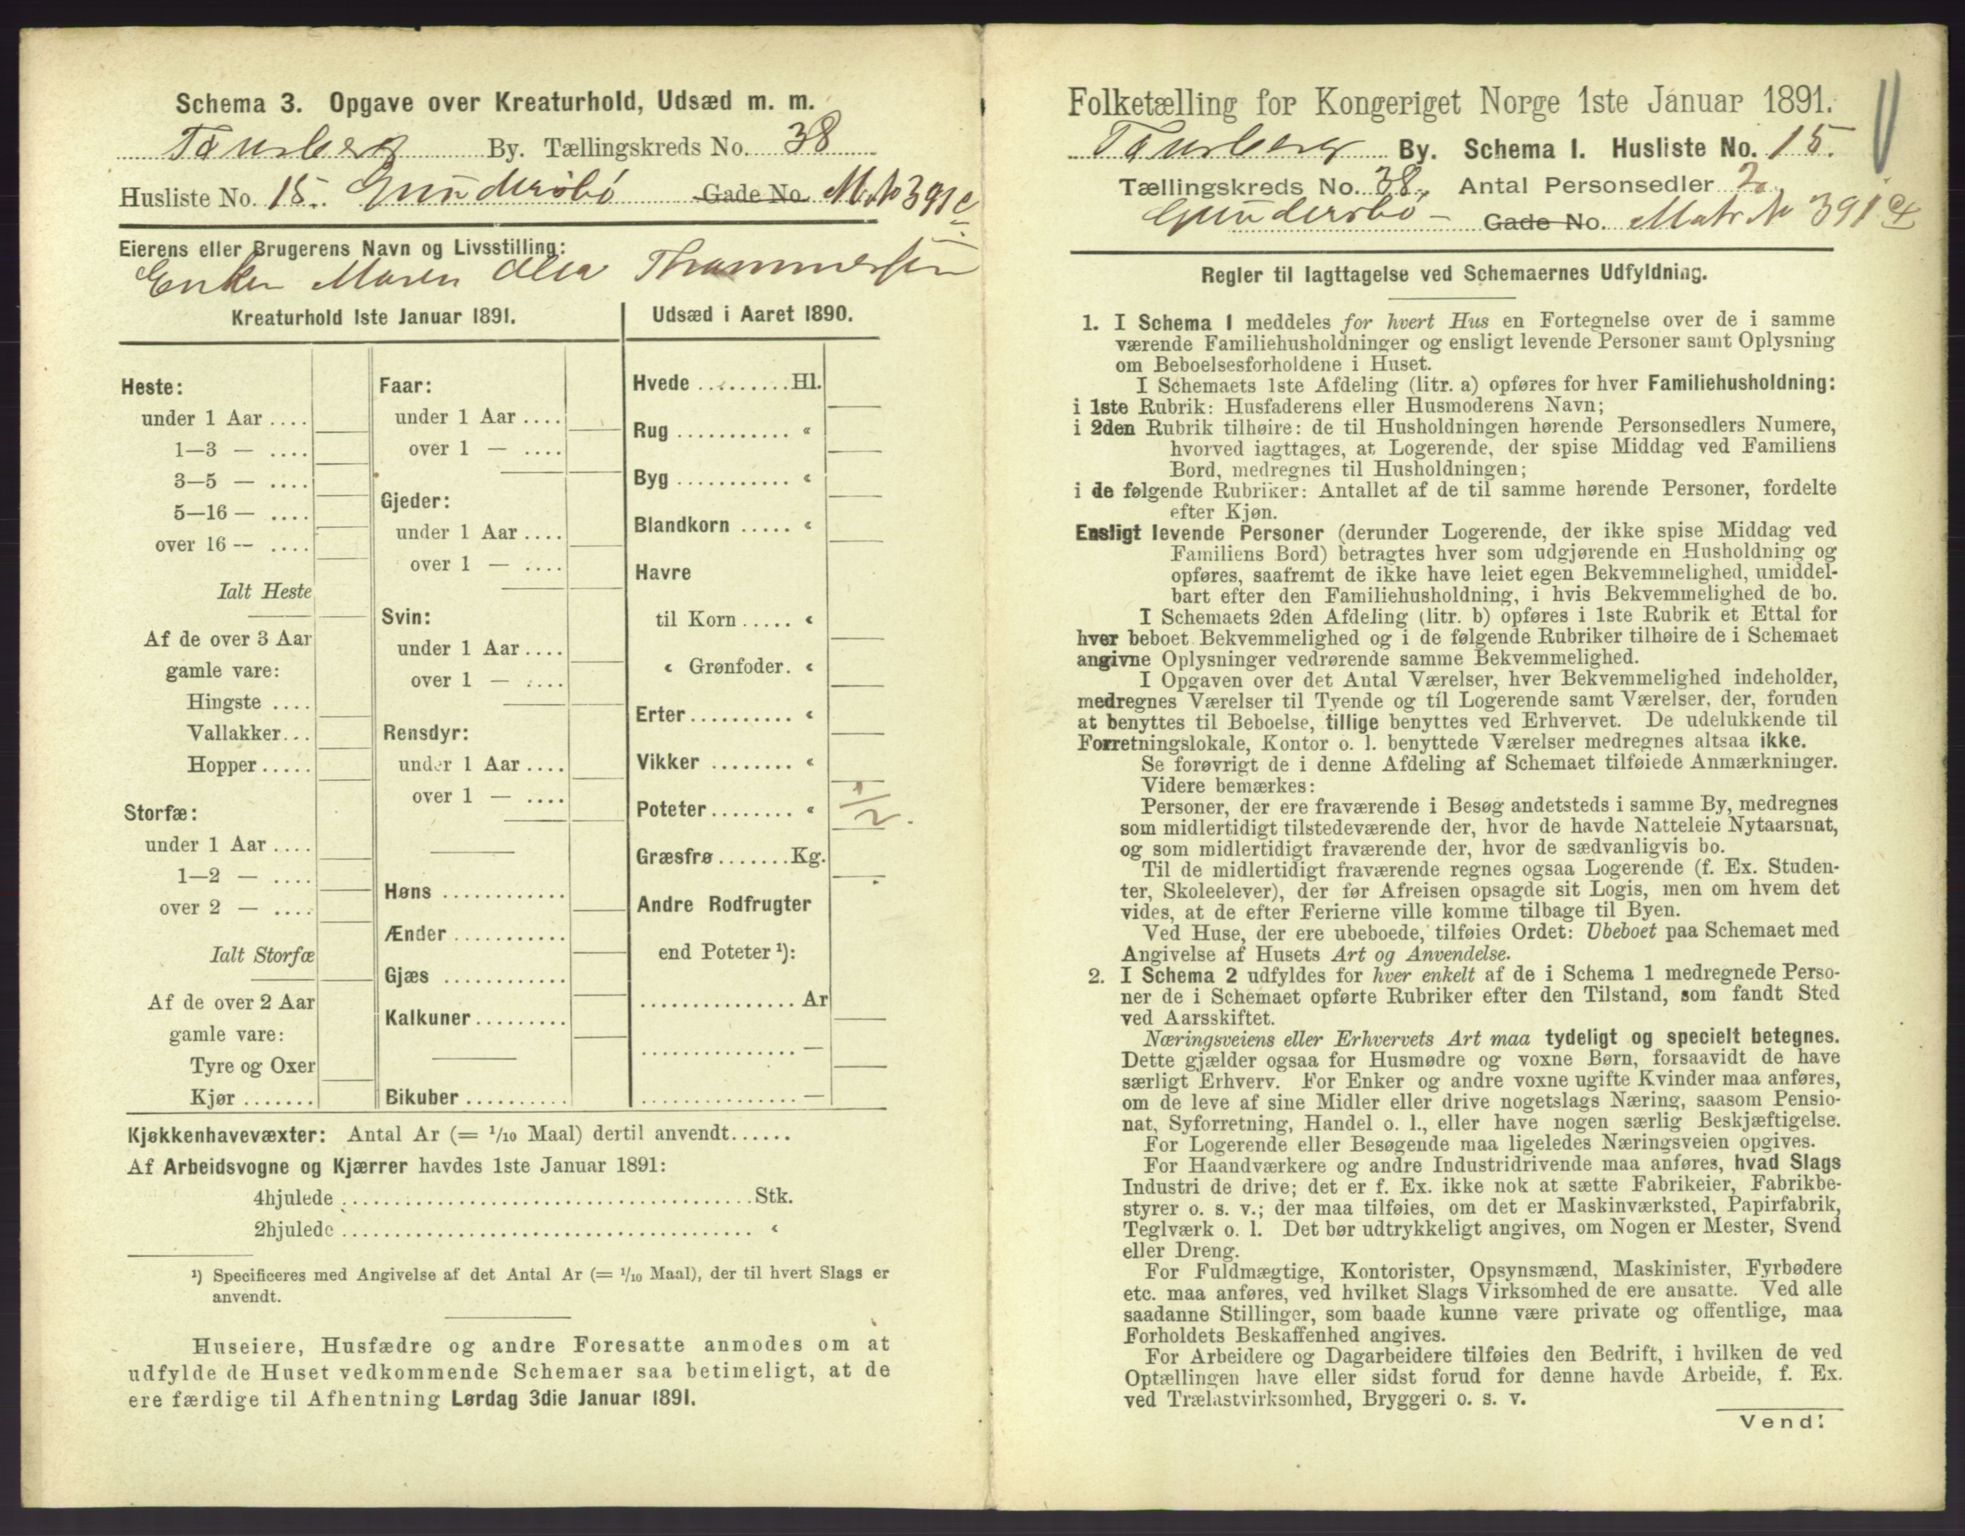 Schema 3. Opgave over Kreaturhold, Udsæd m. m.
Tønsberg By. Tællingskreds No. 38
Husliste No. 15. Gundersbø Gade No. M. No 391c
Eierens eller Brugerens Navn og Livsstilling:
Enke Maren Olea Thommesen
Kreaturhold 1ste Januar 1891.
Heste:
under 1 Aar ....
1—3 — ....
3—5 — ....
5—16 — ....
over 16 — ....
Ialt Heste
Af de over 3 Aar
gamle vare:
Hingste ....
Vallakker...
Hopper.....
Storfæ:
under 1 Aar ....
1—2 — ....
over 2 — ....
Ialt Storfæ
Af de over 2 Aar
gamle vare:
Tyre og Oxer
Kjør .......
Faar:
under 1 Aar ....
over 1 — ....
Gjeder:
under 1 Aar ....
over 1 — ....
Svin:
under 1 Aar ....
over 1 — ....
Rensdyr:
under 1 Aar ....
over 1 — ....
Høns ............
Ænder...........
Gjæs ............
Kalkuner.........
Bikuber ..........
Udsæd i Aaret 1890.
Hvede .........Hl.
Rug ........... «
Byg ........... «
Blandkorn ..... «
Havre
til Korn ..... «
« Grønfoder. «
Erter.......... «
Vikker ........ «
Poteter........ « 1/2.
Græsfrø.......Kg.
Andre Rodfrugter
end Poteter ¹):
...............Ar
............... —
............... —
Kjøkkenhavevæxter: Antal Ar (= 1/10 Maal) dertil anvendt......
Af Arbeidsvogne og Kjærrer havdes 1ste Januar 1891:
4hjulede ........................................Stk.
2hjulede ........................................ «
¹) Specificeres med Angivelse af det Antal Ar (= 1/10 Maal), der til hvert Slags er
anvendt.
Huseiere, Husfædre og andre Foresatte anmodes om at
udfylde de Huset vedkommende Schemaer saa betimeligt, at de
ere færdige til Afhentning Lørdag 3die Januar 1891.
Folketælling for Kongeriget Norge 1ste Januar 1891.
Tønsberg By. Schema I. Husliste No. 15.
Tællingskreds No. 38. Antal Personsedler 2
Gundersbø — Gade No. Matr No 391c
Regler til Iagttagelse ved Schemaernes Udfyldning.
1. I Schema 1 meddeles for hvert Hus en Fortegnelse over de i samme
værende Familiehusholdninger og ensligt levende Personer samt Oplysning
om Beboelsesforholdene i Huset.
I Schemaets 1ste Afdeling (litr. a) opføres for hver Familiehusholdning:
i 1ste Rubrik: Husfaderens eller Husmoderens Navn;
i 2den Rubrik tilhøire: de til Husholdningen hørende Personsedlers Numere,
hvorved iagttages, at Logerende, der spise Middag ved Familiens
Bord, medregnes til Husholdningen;
i de følgende Rubriker: Antallet af de til samme hørende Personer, fordelte
efter Kjøn.
Ensligt levende Personer (derunder Logerende, der ikke spise Middag ved
Familiens Bord) betragtes hver som udgjørende en Husholdning og
opføres, saafremt de ikke have leiet egen Bekvemmelighed, umiddel-
bart efter den Familiehusholdning, i hvis Bekvemmelighed de bo.
I Schemaets 2den Afdeling (litr. b) opføres i 1ste Rubrik et Ettal for
hver beboet Bekvemmelighed og i de følgende Rubriker tilhøire de i Schemaet
angivne Oplysninger vedrørende samme Bekvemmelighed.
I Opgaven over det Antal Værelser, hver Bekvemmelighed indeholder,
medregnes Værelser til Tyende og til Logerende samt Værelser, der, foruden
at benyttes til Beboelse, tillige benyttes ved Erhvervet. De udelukkende til
Forretningslokale, Kontor o. l. benyttede Værelser medregnes altsaa ikke.
Se forøvrigt de i denne Afdeling af Schemaet tilføiede Anmærkninger.
Videre bemærkes:
Personer, der ere fraværende i Besøg andetsteds i samme By, medregnes
som midlertidigt tilstedeværende der, hvor de havde Natteleie Nytaarsnat,
og som midlertidigt fraværende der, hvor de sædvanligvis bo.
Til de midlertidigt fraværende regnes ogsaa Logerende (f. Ex. Studen-
ter, Skoleelever), der før Afreisen opsagde sit Logis, men om hvem det
vides, at de efter Ferierne ville komme tilbage til Byen.
Ved Huse, der ere ubeboede, tilføies Ordet: Ubeboet paa Schemaet med
Angivelse af Husets Art og Anvendelse.
2. I Schema 2 udfyldes for hver enkelt af de i Schema 1 medregnede Perso-
ner de i Schemaet opførte Rubriker efter den Tilstand, som fandt Sted
ved Aarsskiftet.
Næringsveiens eller Erhvervets Art maa tydeligt og specielt betegnes.
Dette gjælder ogsaa for Husmødre og voxne Børn, forsaavidt de have
særligt Erhverv. For Enker og andre voxne ugifte Kvinder maa anføres,
om de leve af sine Midler eller drive nogetslags Næring, saasom Pensio-
nat, Syforretning, Handel o. l., eller have nogen særlig Beskjæftigelse.
For Logerende eller Besøgende maa ligeledes Næringsveien opgives.
For Haandværkere og andre Industridrivende maa anføres, hvad Slags
Industri de drive; det er f. Ex. ikke nok at sætte Fabrikeier, Fabrikbe-
styrer o. s. v.; der maa tilføies, om det er Maskinværksted, Papirfabrik,
Teglværk o. l. Det bør udtrykkeligt angives, om Nogen er Mester, Svend
eller Dreng.
For Fuldmægtige, Kontorister, Opsynsmænd, Maskinister, Fyrbødere
etc. maa anføres, ved hvilket Slags Virksomhed de ere ansatte. Ved alle
saadanne Stillinger, som baade kunne være private og offentlige, maa
Forholdets Beskaffenhed angives.
For Arbeidere og Dagarbeidere tilføies den Bedrift, i hvilken de ved
Optællingen have eller sidst forud for denne havde Arbeide, f. Ex.
ved Trælastvirksomhed, Bryggeri o. s. v.
Vend!